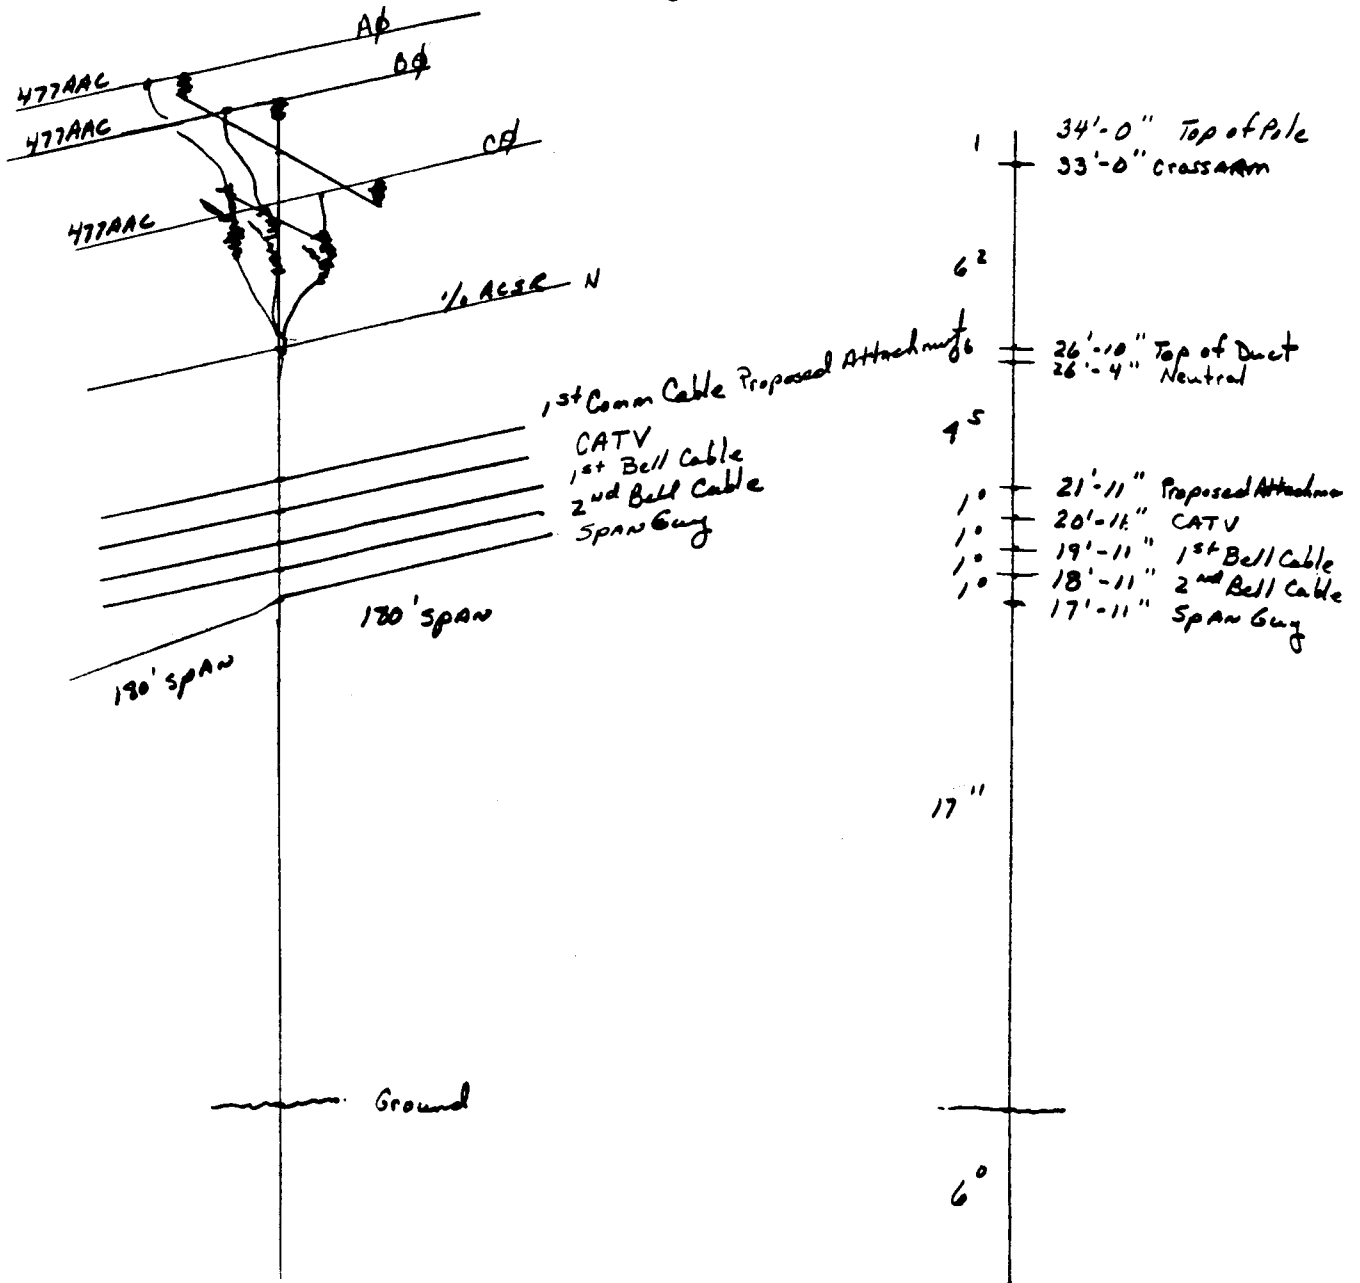 AØ
477AAC
BØ
477AAC
CØ
477AAC
1/0 ACSR N
1st Comm Cable Proposed Attachment
CATV
1st Bell Cable
2nd Bell Cable
Span Guy
180' span
180' span
Ground
1
34'-0" Top of Pole
33'-0" CrossArm
6 2
6
26'-10" Top of Duct
26'-4" Neutral
4 5
21'-11" Proposed Attachme
1 0
20'-11" CATV
1 0
19'-11" 1st Bell Cable
1 0
18'-11" 2nd Bell Cable
1 0
17'-11" Span Guy
17 11
6 0